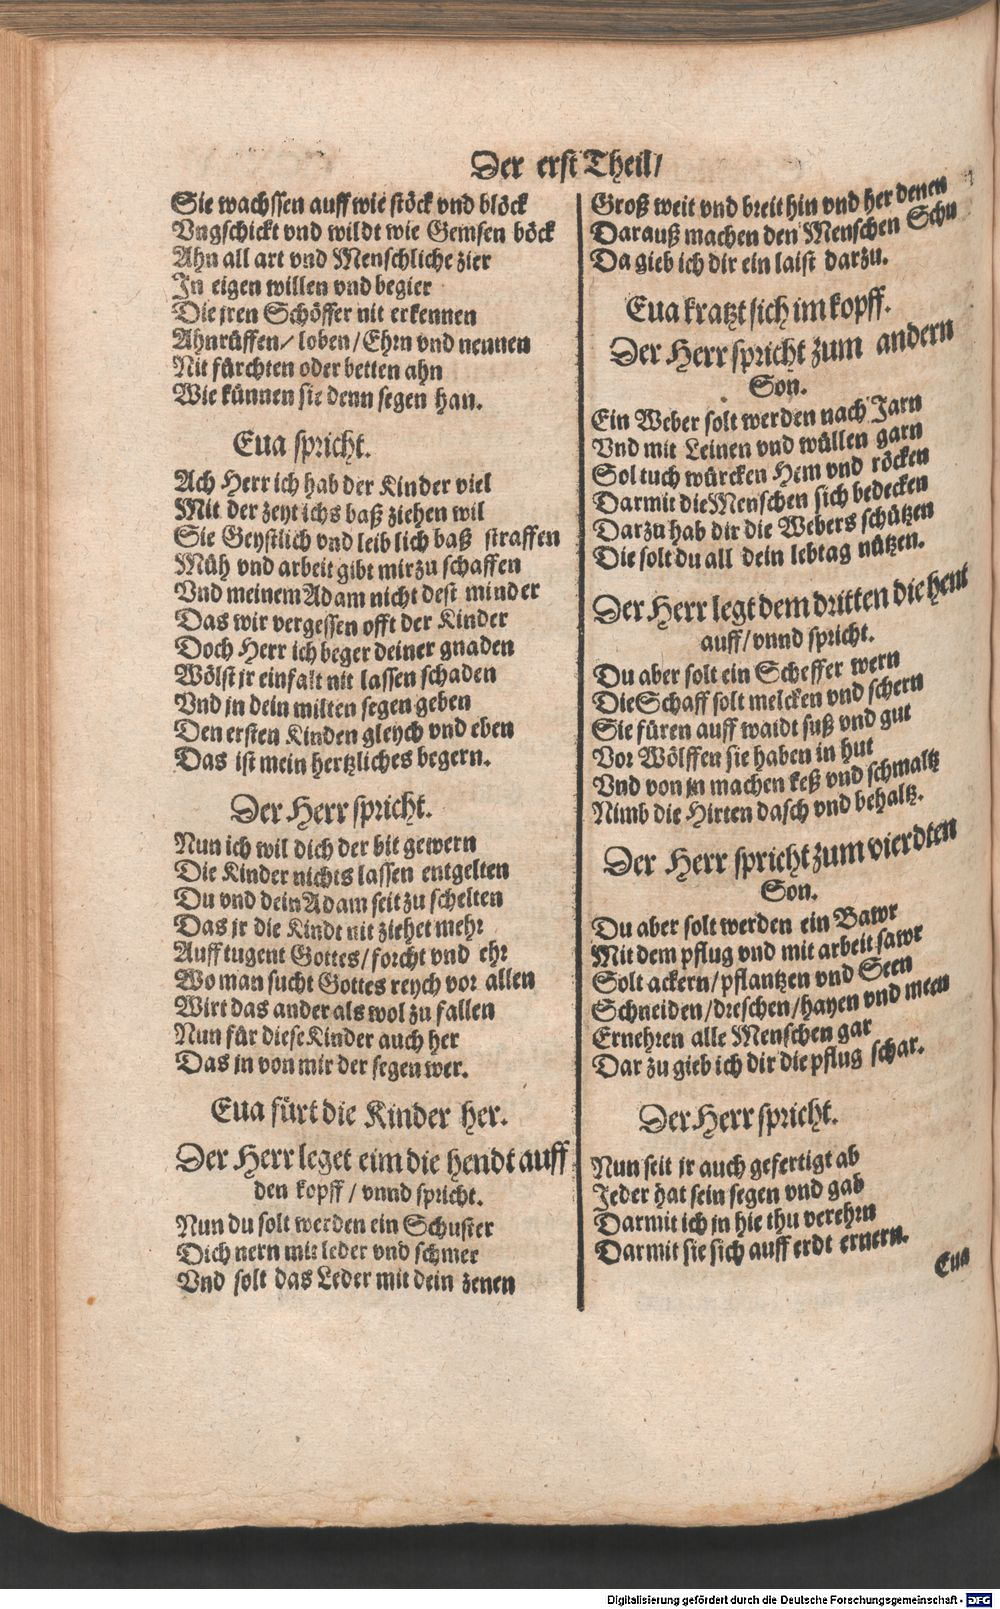 Der erst Theil/
Sie wachssen auff wie stöck vnd blöck
Vngschickt vnd wildt wie Gemsen böck
Ahn all art vnd Menschliche zier
In eigen willen vnd begier
Die jren Schöffer nit erkennen
Ahnrüffen/ loben/ Ehrn vnd nennen
Nit fürchten oder betten ahn
Wie künnen sie denn segen han.
Eua spricht.
Ach Herr ich hab der Kinder viel
Mit der zeyt ichs baß ziehen wil
Sie Geystlich vnd leiblich baß straffen
Müh vnd arbeit gibt mir zu schaffen
Vnd meinem Adam nicht dest minder
Das wir vergessen offt der Kinder
Doch Herr ich beger deiner gnaden
Wölst jr einfalt nit lassen schaden
Vnd jn dein milten segen geben
Den ersten Kinden gleych vnd eben
Das ist mein hertzliches begern.
Der Herr spricht.
Nun ich wil dich der bit gewern
Die Kinder nichts lassen entgelten
Du vnd dein Adam seit zu schelten
Das jr die Kindt nit ziehet mehr
Auff tugent Gottes/ forcht vnd ehr
Wo man sucht Gottes reych vor allen
Wirt das ander als wol zu fallen
Nun für diese Kinder auch her
Das jn von mir der segen wer.
Eua fürt die Kinder her.
Der Herr leget eim die hendt auff
den kopff/ vnnd spricht.
Nun du solt werden ein Schuster
Dich nern mit leder vnd schmer
Vnd solt das Leder mit dein zenen
Groß weit vnd breit hin vnd her denen
Darauß machen den Menschen Schu
Da gieb ich dir ein laist darzu.
Eua kratzt sich im kopff.
Der Herr spricht zum andern
Son.
Ein Weber solt werden nach Jarn
Vnd mit Leinen vnd wüllen garn
Sol tuch würcken Hem vnd röcken
Darmit die Menschen sich bedecken
Darzu hab dir die Webers schützen
Die solt du all dein lebtag nützen.
Der Herr legt dem dritten die hent
auff/ vnnd spricht.
Du aber solt ein Scheffer wern
Die Schaff solt melcken vnd schern
Sie füren auff waidt suß vnd gut
Vor Wölffen sie haben in hut
Vnd von jn machen keß vnd schmaltz
Nimb die Hirten dasch vnd behaltz.
Der Herr spricht zum vierdten
Son.
Du aber solt werden ein Bawr
Mit dem pflug vnd mit arbeit sawr
Solt ackern/ pflantzen vnd Seen
Schneiden/ dreschen/ hayen vnd meen
Ernehren alle Menschen gar
Dar zu gieb ich dir die pflug schar.
Der Herr spricht.
Nun seit jr auch gefertigt ab
Jeder hat sein segen vnd gab
Darmit ich jn hie thu verehrn
Darmit sie sich auff erdt ernern.
Eua
Digitalisierung gefördert durch die Deutsche Forschungsgemeinschaft - DFG